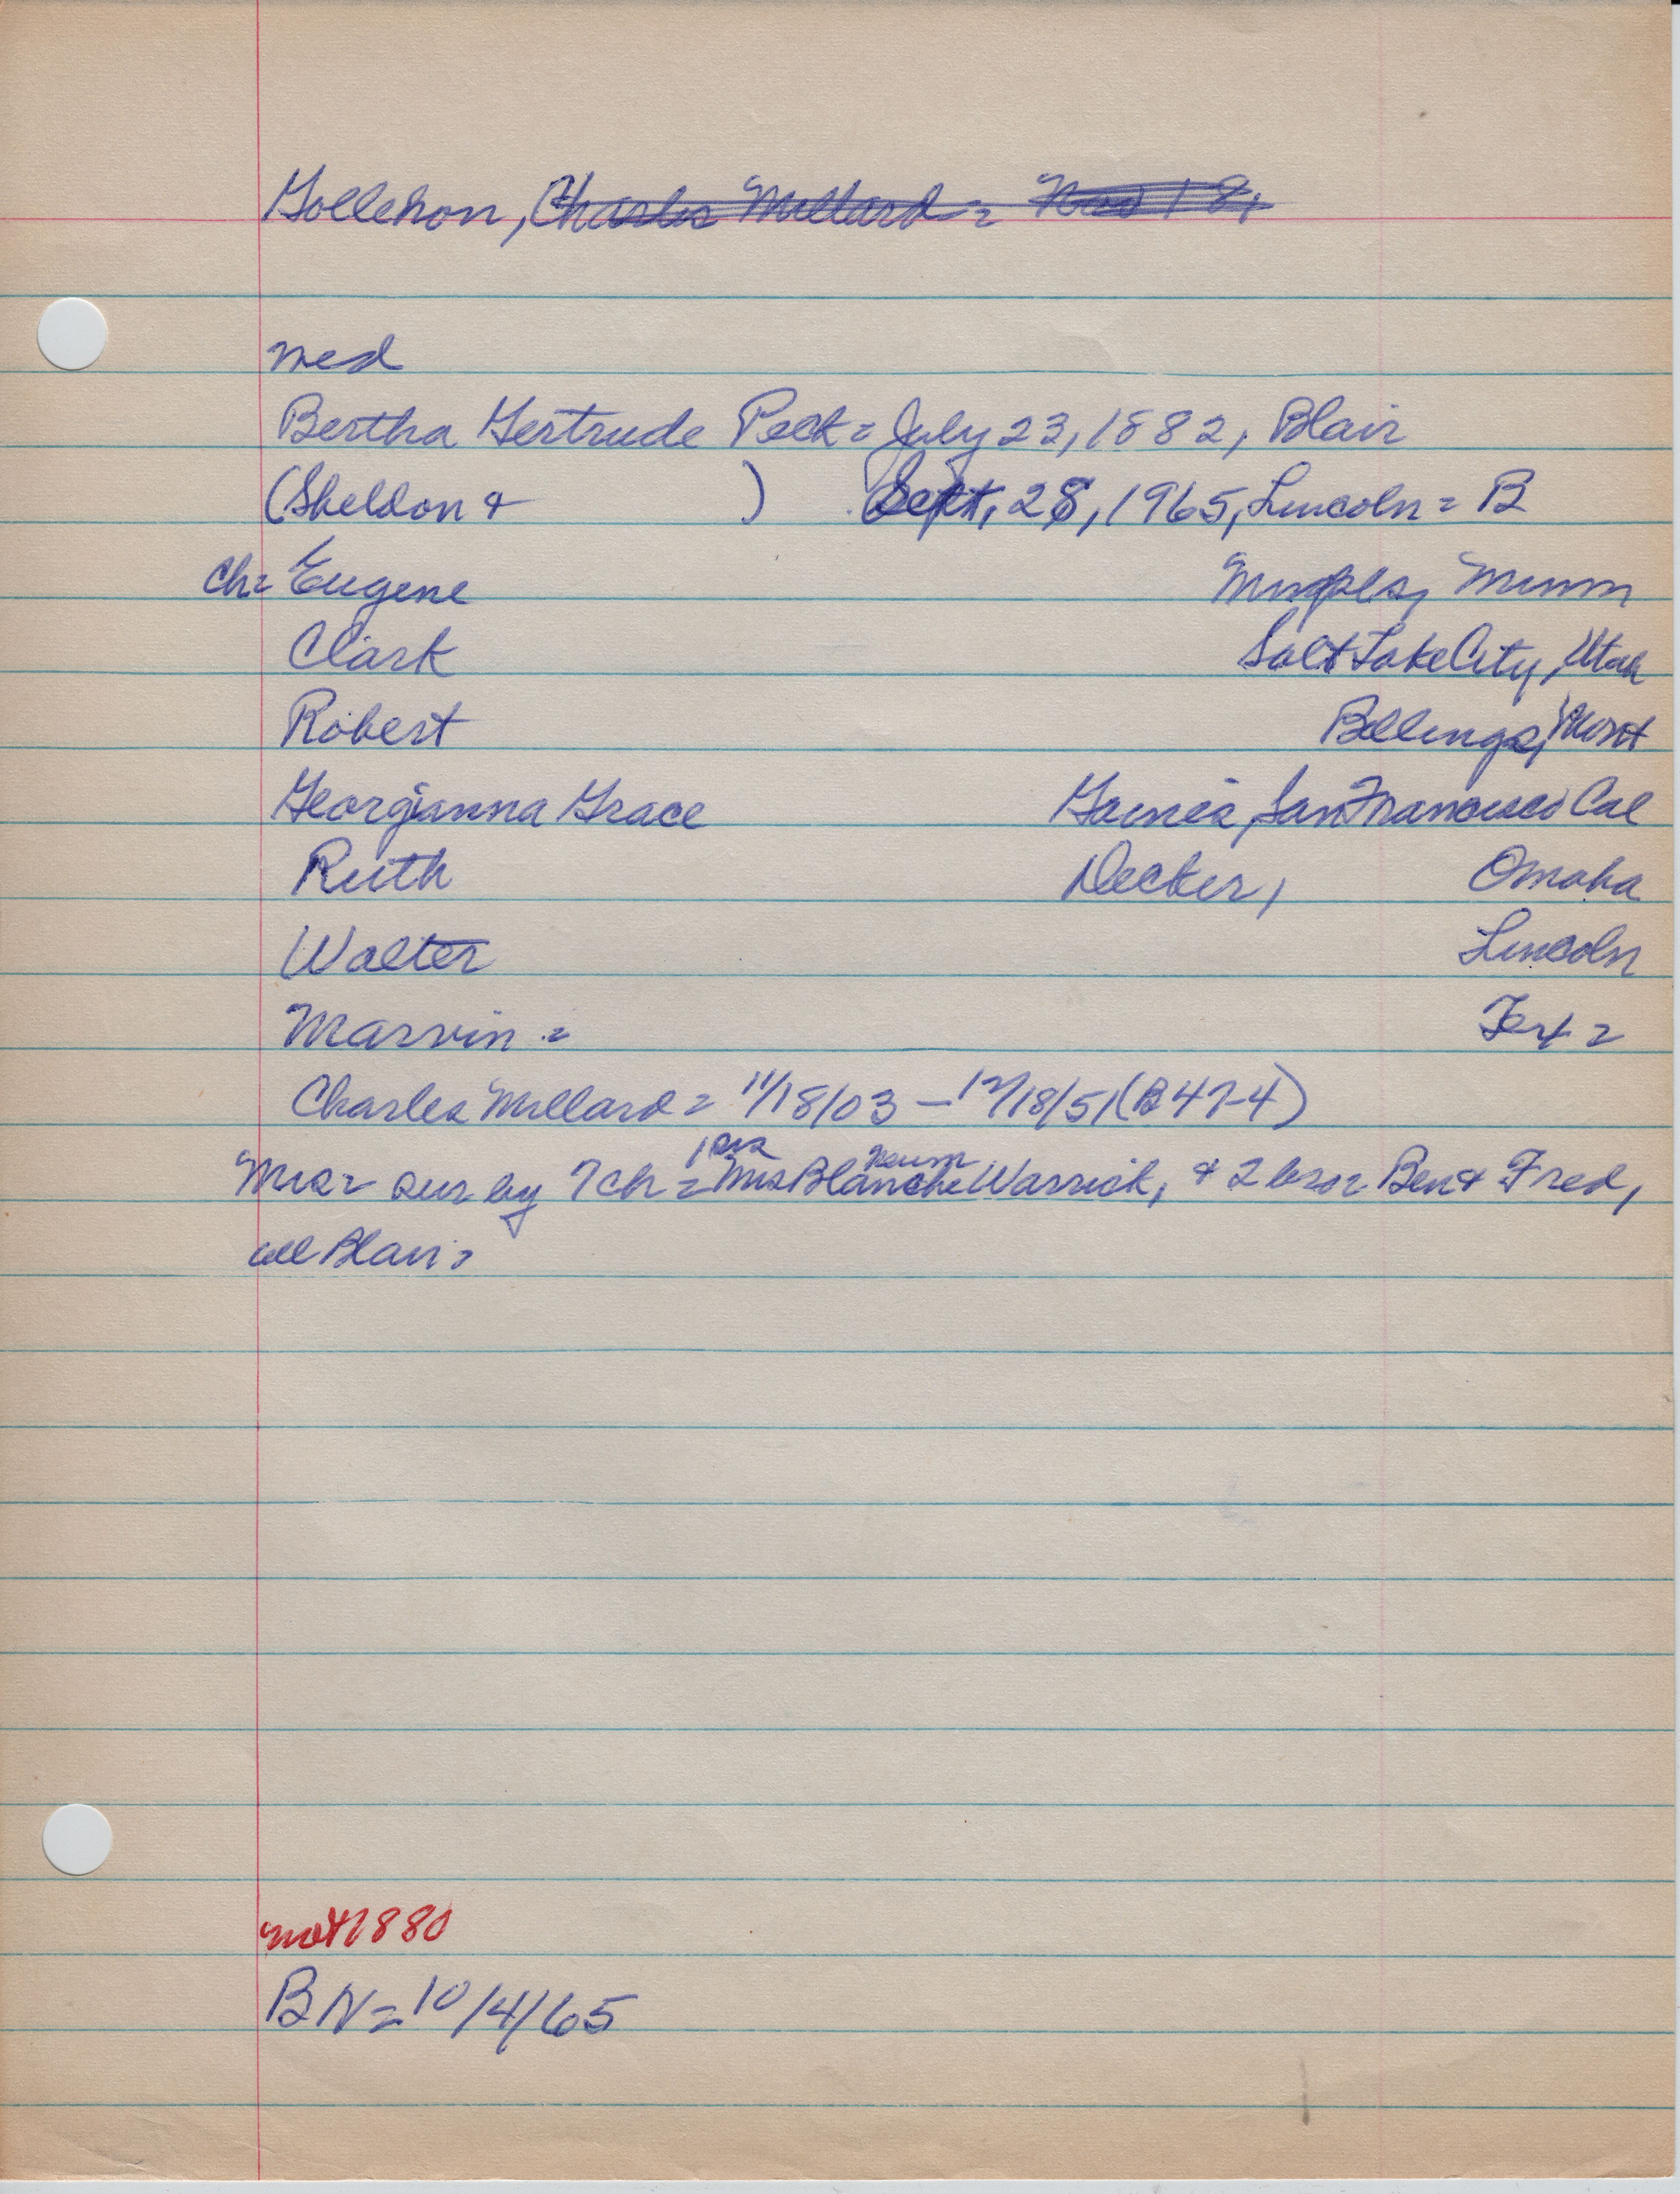 Gollehon, Charles Millard = Nov 18,
med
Bertha Gertrude Peck = July 23, 1882, Blair
(Sheldon & ) Sept, 28, 1965, Lincoln = B
Ch= Eugene Minpls, Minn
Clark Salt Lake City, Utah
Robert Billings, Mont
Georgianna Grace Gaines, San Francisco Cal
Ruth Decker, Omaha
Walter Lincoln
Marvin = Tex =
Charles Millard = 11/18/03 – 12/18/51 (B47-4)
1 sis
Mrs = sur by 7 ch = Mrs Blanche Warrick, & 2 bro = Ben & Fred,
all Blair =
not 1880
BN = 10/4/65